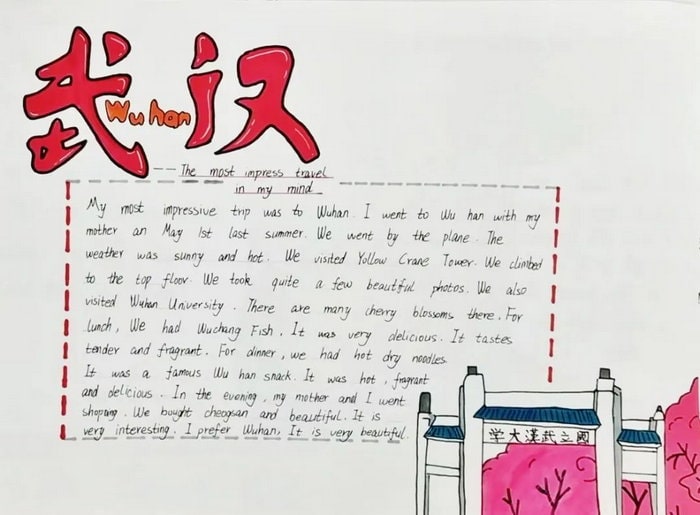 武汉
Wuhan
The most impress travel
in my mind
My most impressive trip was to Wuhan. I went to Wu han with my
mother an May 1st last summer. We went by the plane. The
weather was sunny and hot. We visited Yollow Crane Tower. We climbed
to the top floov. We took quite a few beautiful photos. We also
visited Wuhan University. There are many cherry blossoms there. For
lunch, We had Wuchang Fish. It was very delicious. It tastes
tender and fragrant. For dinner, we had hot dry noodles.
It was a famous Wu han snack. It was hot, fragrant
and delicious. In the evening, my mother and I went
shopping. We bought cheogsan and beautiful. It is
very interesting. I prefer Wuhan, It is very beautiful.
学大漢武立國